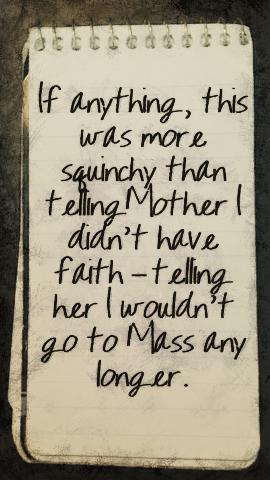 If anything, this
was more
squinchy than
telling Mother I
didn't have
faith – telling
her I wouldn't
go to Mass any
longer.